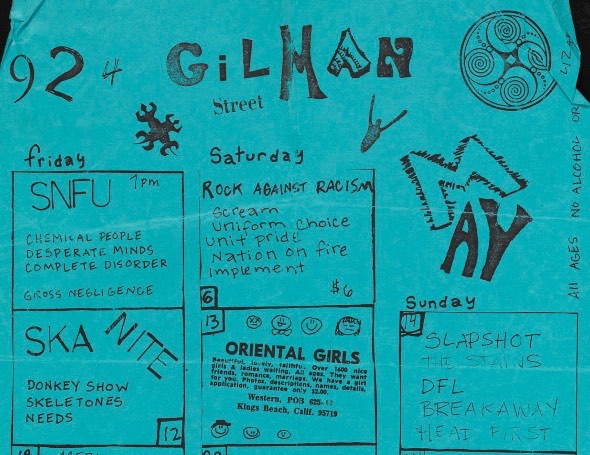 924 GiLMAN
Street
MAY
All AGES NO ALCOHOL OR
friday
SNFU 7pm
CHEMICAL PEOPLE
DESPERATE MINDS
COMPLETE DISORDER
GROSS NEGLIGENCE
Saturday
ROCK AGAINST RACISM
Scream
Uniform Choice
Unit pride
Nation on fire
Implement
$6
6
Sunday
SKA NITE
DONKEY SHOW
SKELETONES
NEEDS
12
13
ORIENTAL GIRLS
Beautiful, lovely, faithful. Over 1600 nice
girls & ladies waiting. All ages. They want
friends, romance, marriage. We have a girl
for you. Photos, descriptions, names, details,
application, guarantee only $2.00.
Western, POB 625-
Kings Beach, Calif. 95719
14
SLAPSHOT
THE STAINS
DFL
BREAKAWAY
HEAD FIRST